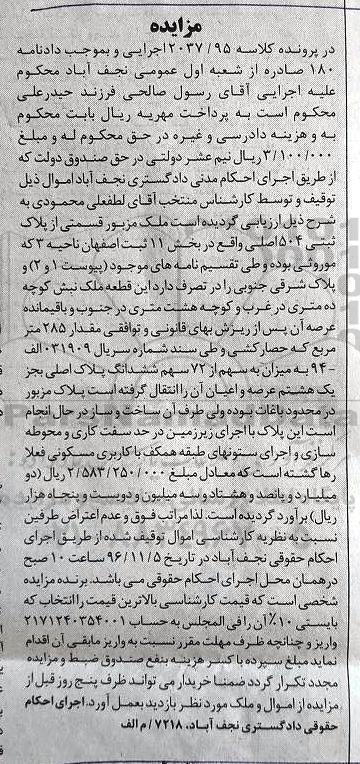 مزایده
در پرونده کلاسه ۹۵/ ۲۰۳۷ اجرایی و بموجب دادنامه
۱۸۰ صادره از شعبه اول عمومی نجف آباد محکوم
علیه اجرایی آقای رسول صالحی فرزند حیدرعلی
محکوم است به پرداخت مهریه ریال بابت محکوم
به و هزینه دادرسی و غیره در حق محکوم له و مبلغ
۳/۱۰۰/۰۰۰ ریال نیم عشر دولتی در حق صندوق دولت که
از طریق اجرای احکام مدنی دادگستری نجف آباد اموال ذیل
توقیف و توسط کارشناس منتخب آقای لطفعلی محمودی به
شرح ذیل ارزیابی گردیده است ملک مزبور قسمتی از پلاک
ثبتی ۵۰۴ اصلی واقع در بخش ۱۱ ثبت اصفهان ناحیه ۳ که
موروثی بوده و طی تقسیم نامه های موجود (پیوست ۱ و ۲) و
پلاک شرقی جنوبی را در تصرف دارد این قطعه ملک نبش کوچه
ده متری در غرب و کوچه هشت متری در جنوب و باقیمانده
عرصه آن پس از ریزش بهای قانونی و توافقی مقدار ۲۸۵ متر
مربع که حصار کشی و طی سند شماره سریال ۰۳۱۹۰۹ الف
-۹۴ به میزان نه سهم از ۷۲ سهم ششدانگ پلاک اصلی بجز
یک هشتم عرصه و اعیان آن را انتقال گرفته است پلاک مزبور
در محدود باغات بوده ولی طرف آن ساخت و ساز در حال انجام
است این پلاک با اجرای زیرزمین در حد سفت کاری و محوطه
سازی و اجرای ستونهای طبقه همکف با کاربری مسکونی فعلا
رها گشته است که معادل مبلغ ۲/۵۸۳/۲۵۰/۰۰۰ ریال (دو
میلیارد و پانصد و هشتاد و سه میلیون و دویست و پنجاه هزار
ریال) برآورد گردیده است. لذا مراتب فوق و عدم اعتراض طرفین
نسبت به نظریه کارشناسی اموال توقیف شده از طریق اجرای
احکام حقوقی نجف آباد در تاریخ ۹۶/۱۱/۵ ساعت ۱۰ صبح
در همان محل اجرای احکام حقوقی می باشد. برنده مزایده
شخصی است که قیمت کارشناسی بالاترین قیمت را انتخاب که
بایستی ۱۰٪ آن را فی المجلس به حساب ۲۱۷۱۲۴۰۳۵۴۰۰۱
واریز و چنانچه ظرف مهلت مقرر نسبت به واریز مابقی آن اقدام
ننماید مبلغ سپرده با کسر هزینه بنفع صندوق ضبط و مزایده
مجدد تکرار گردد ضمنا خریدار می تواند ظرف پنج روز قبل از
مزایده از اموال و ملک مورد نظر بازدید بعمل آورد. اجرای احکام
حقوقی دادگستری نجف آباد. ۷۲۱۸/م الف